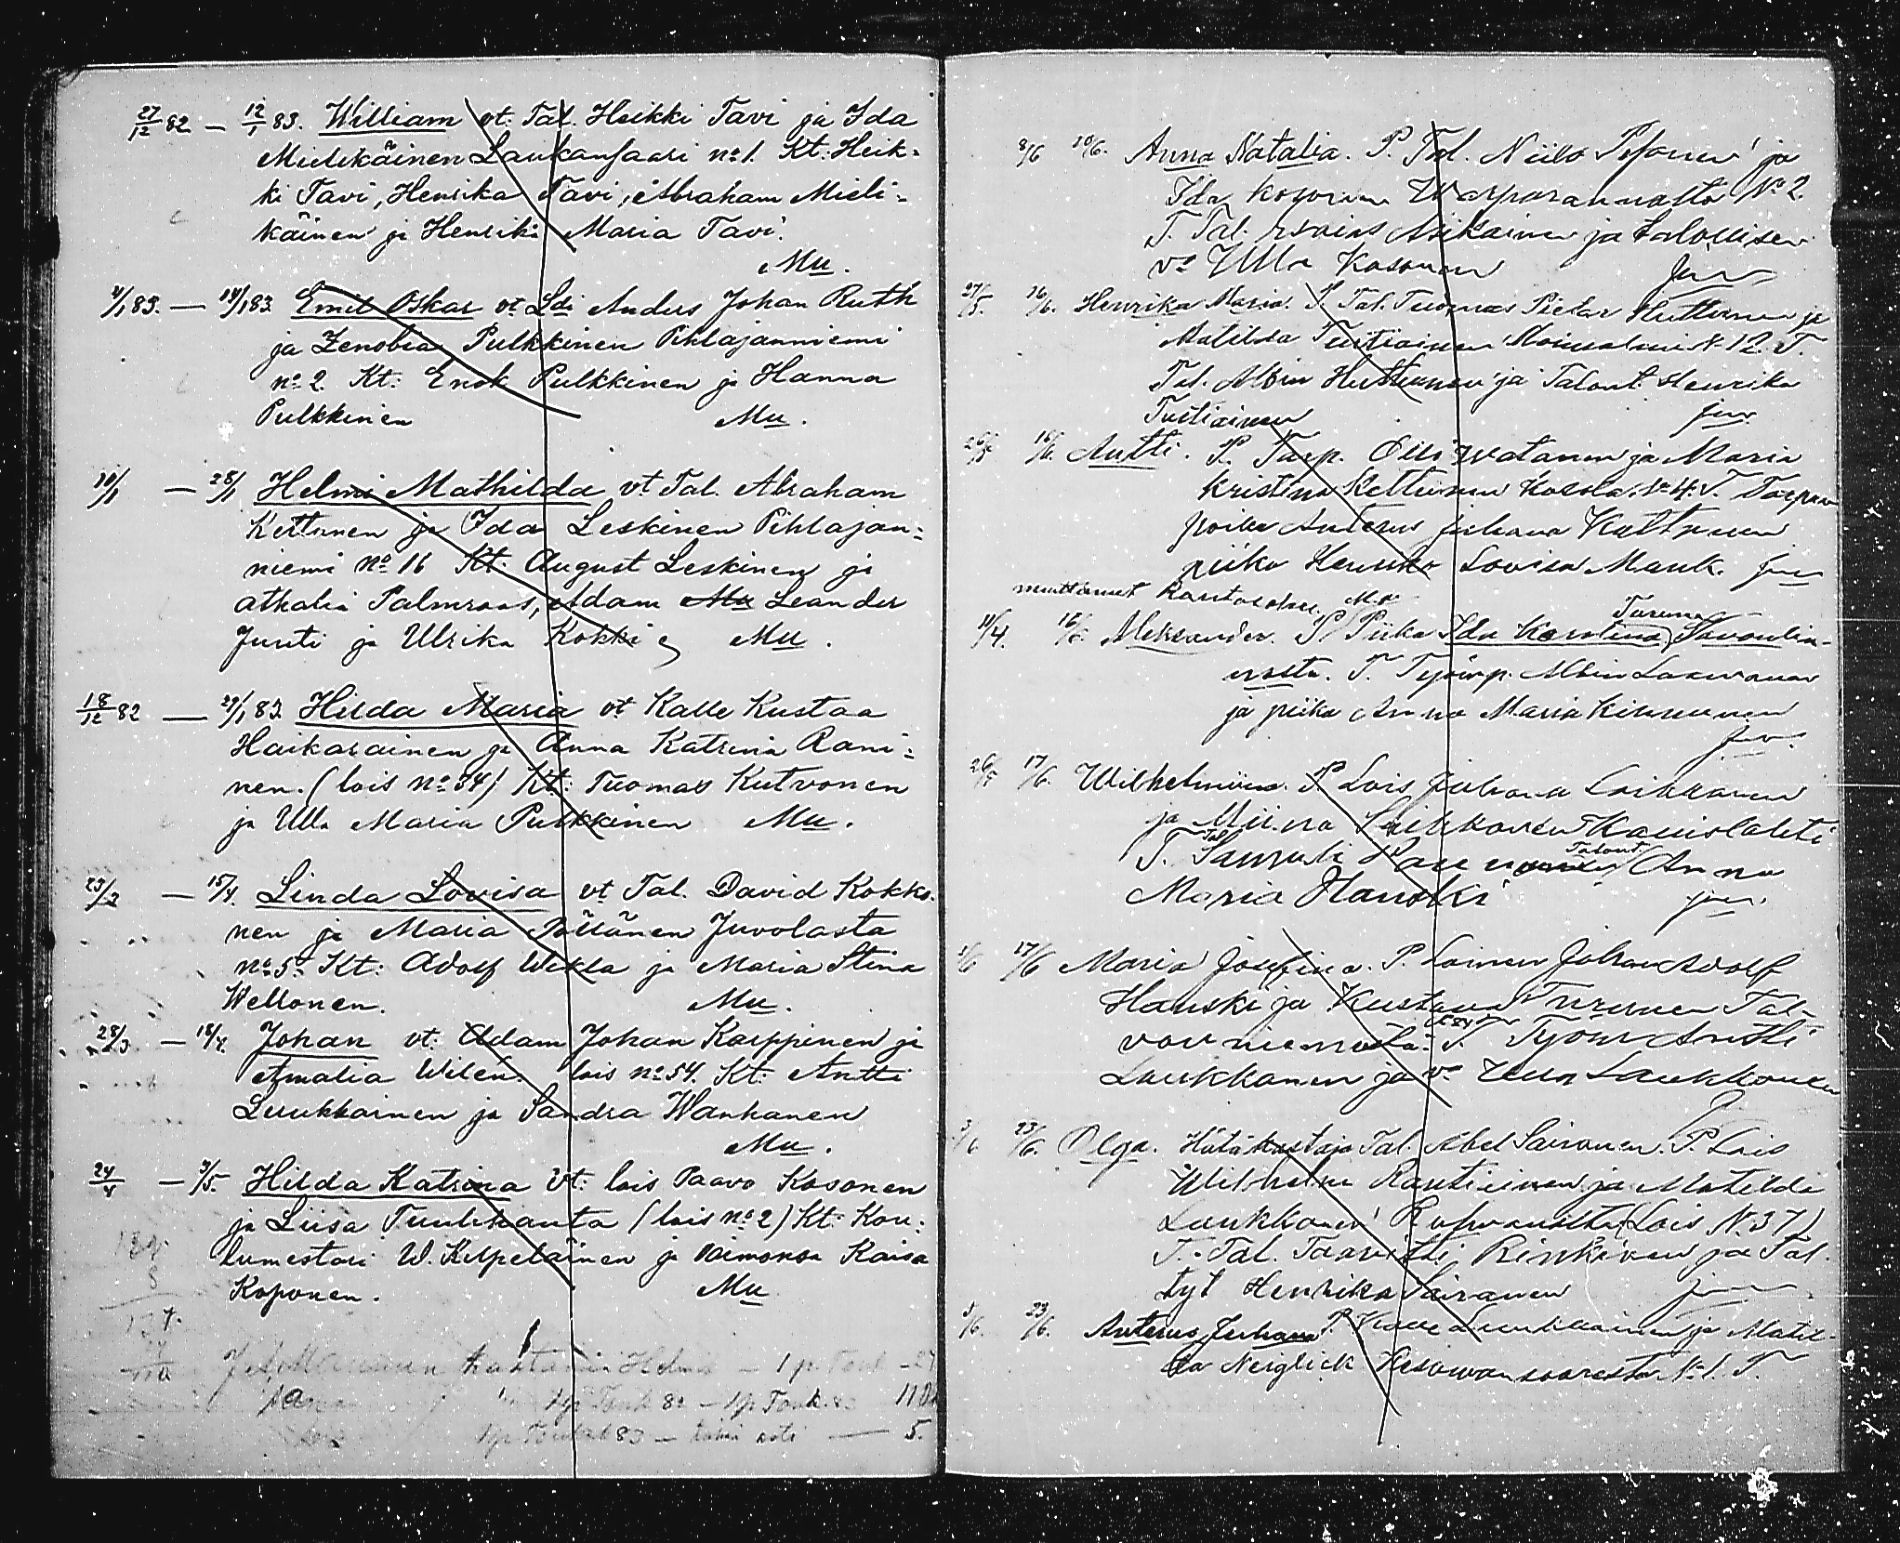 27/12 82 — 12/1 83. William vt. Tal. Heikki Tavi ja Ida
Mielikäinen Laukansaari no 1. Kt: Heik-
ki Tavi, Henrika Tavi, Abraham Mieli-
käinen ja Henrika Maria Tavi.
Mu.
4/1 83. — 14/1 83 Emil Oskar vt. Ldi Anders Johan Ruth
ja Zenobia Pulkkinen Pihlajanniemi
no 2. Kt: Enok Pulkkinen ja Hanna
Pulkkinen Mu.
10/1 — 28/1 Helmi Mathilda vt Tal. Abraham
Kettunen ja Ida Leskinen Pihlajan-
niemi no 16 Kt: August Leskinen ja
Athalia Palmroos, Adam Mu Leander
Junti ja Ulrika Kokki Mu.
18/12 82 — 29/1 83. Hilda Maria vt Kalle Kustaa
Haikarainen ja Anna Katrina Rani-
nen. (lois no 34) Kt: Tuomas Kutvonen
ja Ulla Maria Pulkkinen Mu.
23/3 — 15/4. Linda Lovisa vt Tal. David Kokko-
nen ja Maria Pöllänen Juvolasta
no 5. Kt: Adolf Wikla ja Maria Stina
Wellonen. Mu.
28/3 — 18/4. Johan vt: Adam Johan Karppinen ja
Amalia Wilén. lois no 54. Kt: Antti
Luukkainen ja Sandra Wanhanen
Mu.
24/4 — 3/5. Hilda Katrina vt: lois Paavo Kosonen
ja Liisa Tuulikanta (lois no 2) Kt: Kou-
lumestari W. Kilpeläinen ja vaimonsa Kaisa
Koponen. Mu
Helma — 1 p. Touk
1 p Touk 82 — 1 p Touk. 83
5.
8/6 10/6. Anna Natalia. P. Tal. Niilo Pesonen ja
Ida Kosonen Warparannalta No 2.
T. Tal. Aikainen ja talollisen
vo Ulla Kosonen Jun
27/5. 16/6. Henrika Maria. P. Tal. Tuomas Pietar Huttunen ja
Matilda Tuitiainen No 12. T.
Tal. Albin Huttunen ja Talont. Henrika
Tuitiainen Jun.
16/6. Antti. P. Torp. Olli Watanen ja Maria
Kristina Kettunen Kosola No 4. T. Torparin
poika Anterus Juhana Kettunen
piika Henrika Lovisa Mank. Jun
muuttanut Rantasalmi
10/4. 16/6. Aleksander. P. Piika Ida Karolina Turunen Savonlin-
nasta. T. Työmp. Albin
ja piika Anna Maria Kinnunen
Jun.
26/5 17/6. Wilhelmiina. P. Lois Juhana Laikkanen
ja Miina Kaurislahti
T. Tal. Samuli Talont. Anna
Maria Hanski Jun.
1/6 17/6 Maria Josefina. P. Loinen Johan Adolf
Hanski ja Kustaava Turunen Tal-
vonniemestä. T. Työm Antti
Laukkanen ja vo Laukkanen
3/6 23/6. Olga. Hätäkastaja Tal. Abel Sairanen. P. Lois
Wilhelm Rautiainen ja Matilda
Laukkanen (Lois No 37)
T. Tal. Taavetti Rinkinen ja Tal.
tyt Henrika Sairanen Jun
5/6. 23/6. Anterus Juhana P. Kalle Luukkainen ja Matil-
da Neiglick Kesavansaaresta No 1. T.